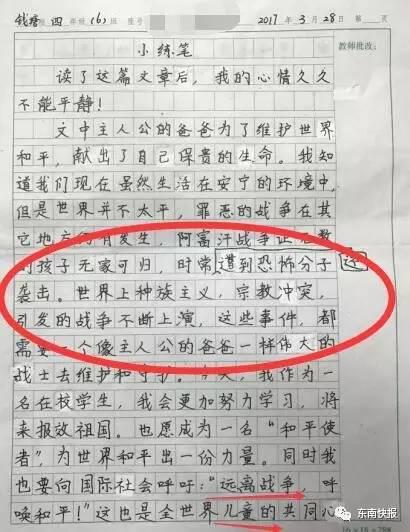 钱塘 四 年级(6)班 座号 2017年3月28日 第 页
教师批改:
小练笔
读了这篇文章后,我的心情久久
不能平静!
文中主人公的爸爸为了维护世界
和平,献出了自己保贵的生命。我知
道我们现在虽然生活在安宁的环境中,
但是世界并不太平,罪恶的战争在其
它地方仍有发生,阿富汗战争让无数
的孩子无家可归,时常遭到恐怖分子 遭
袭击。世界上种族主义,宗教冲突,
引发的战争不断上演,这些事件,都
需要一个像主人公的爸爸一样伟大的
战士去维护和守护。今天,我作为一
名在校学生,我会更加努力学习,将
来报放祖国。也愿成为一名“和平使
者”,为世界和平出一份力量。同时我
也要向国际社会呼吁:“远离战争,呼
唤和平!”这也是全世界儿童的共同心
16×18=288
东南快报